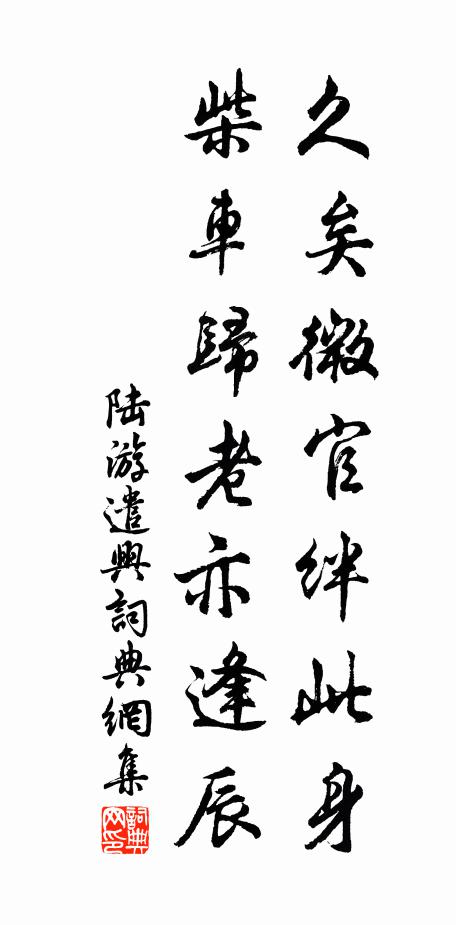 久矣微官絆此身
柴車歸老亦逢辰
陆游遣興詞典網集
詞典网印